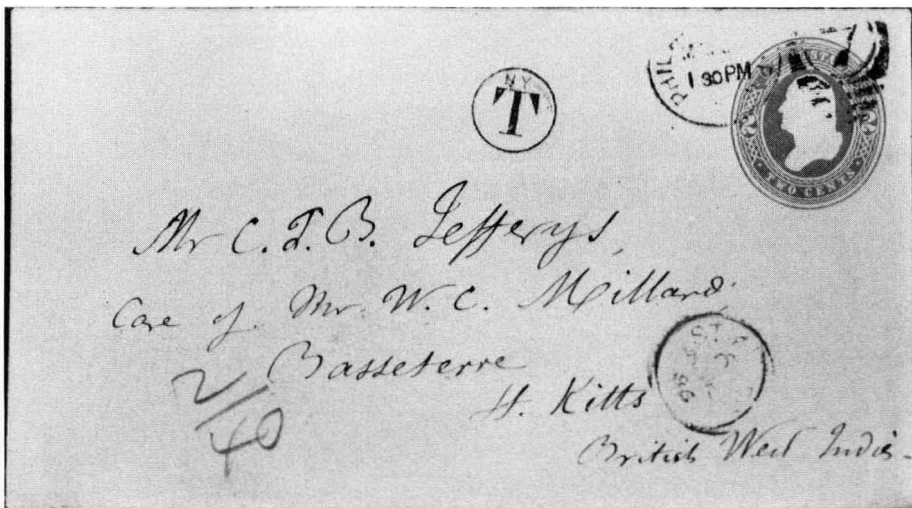 PHIL
1 30 PM
NY
T
TWO CENTS
Mr C. T. B. Jefferys,
Care of Mr. W. C. Millard
Basseterre
St. Kitts
British West Indies
2/40